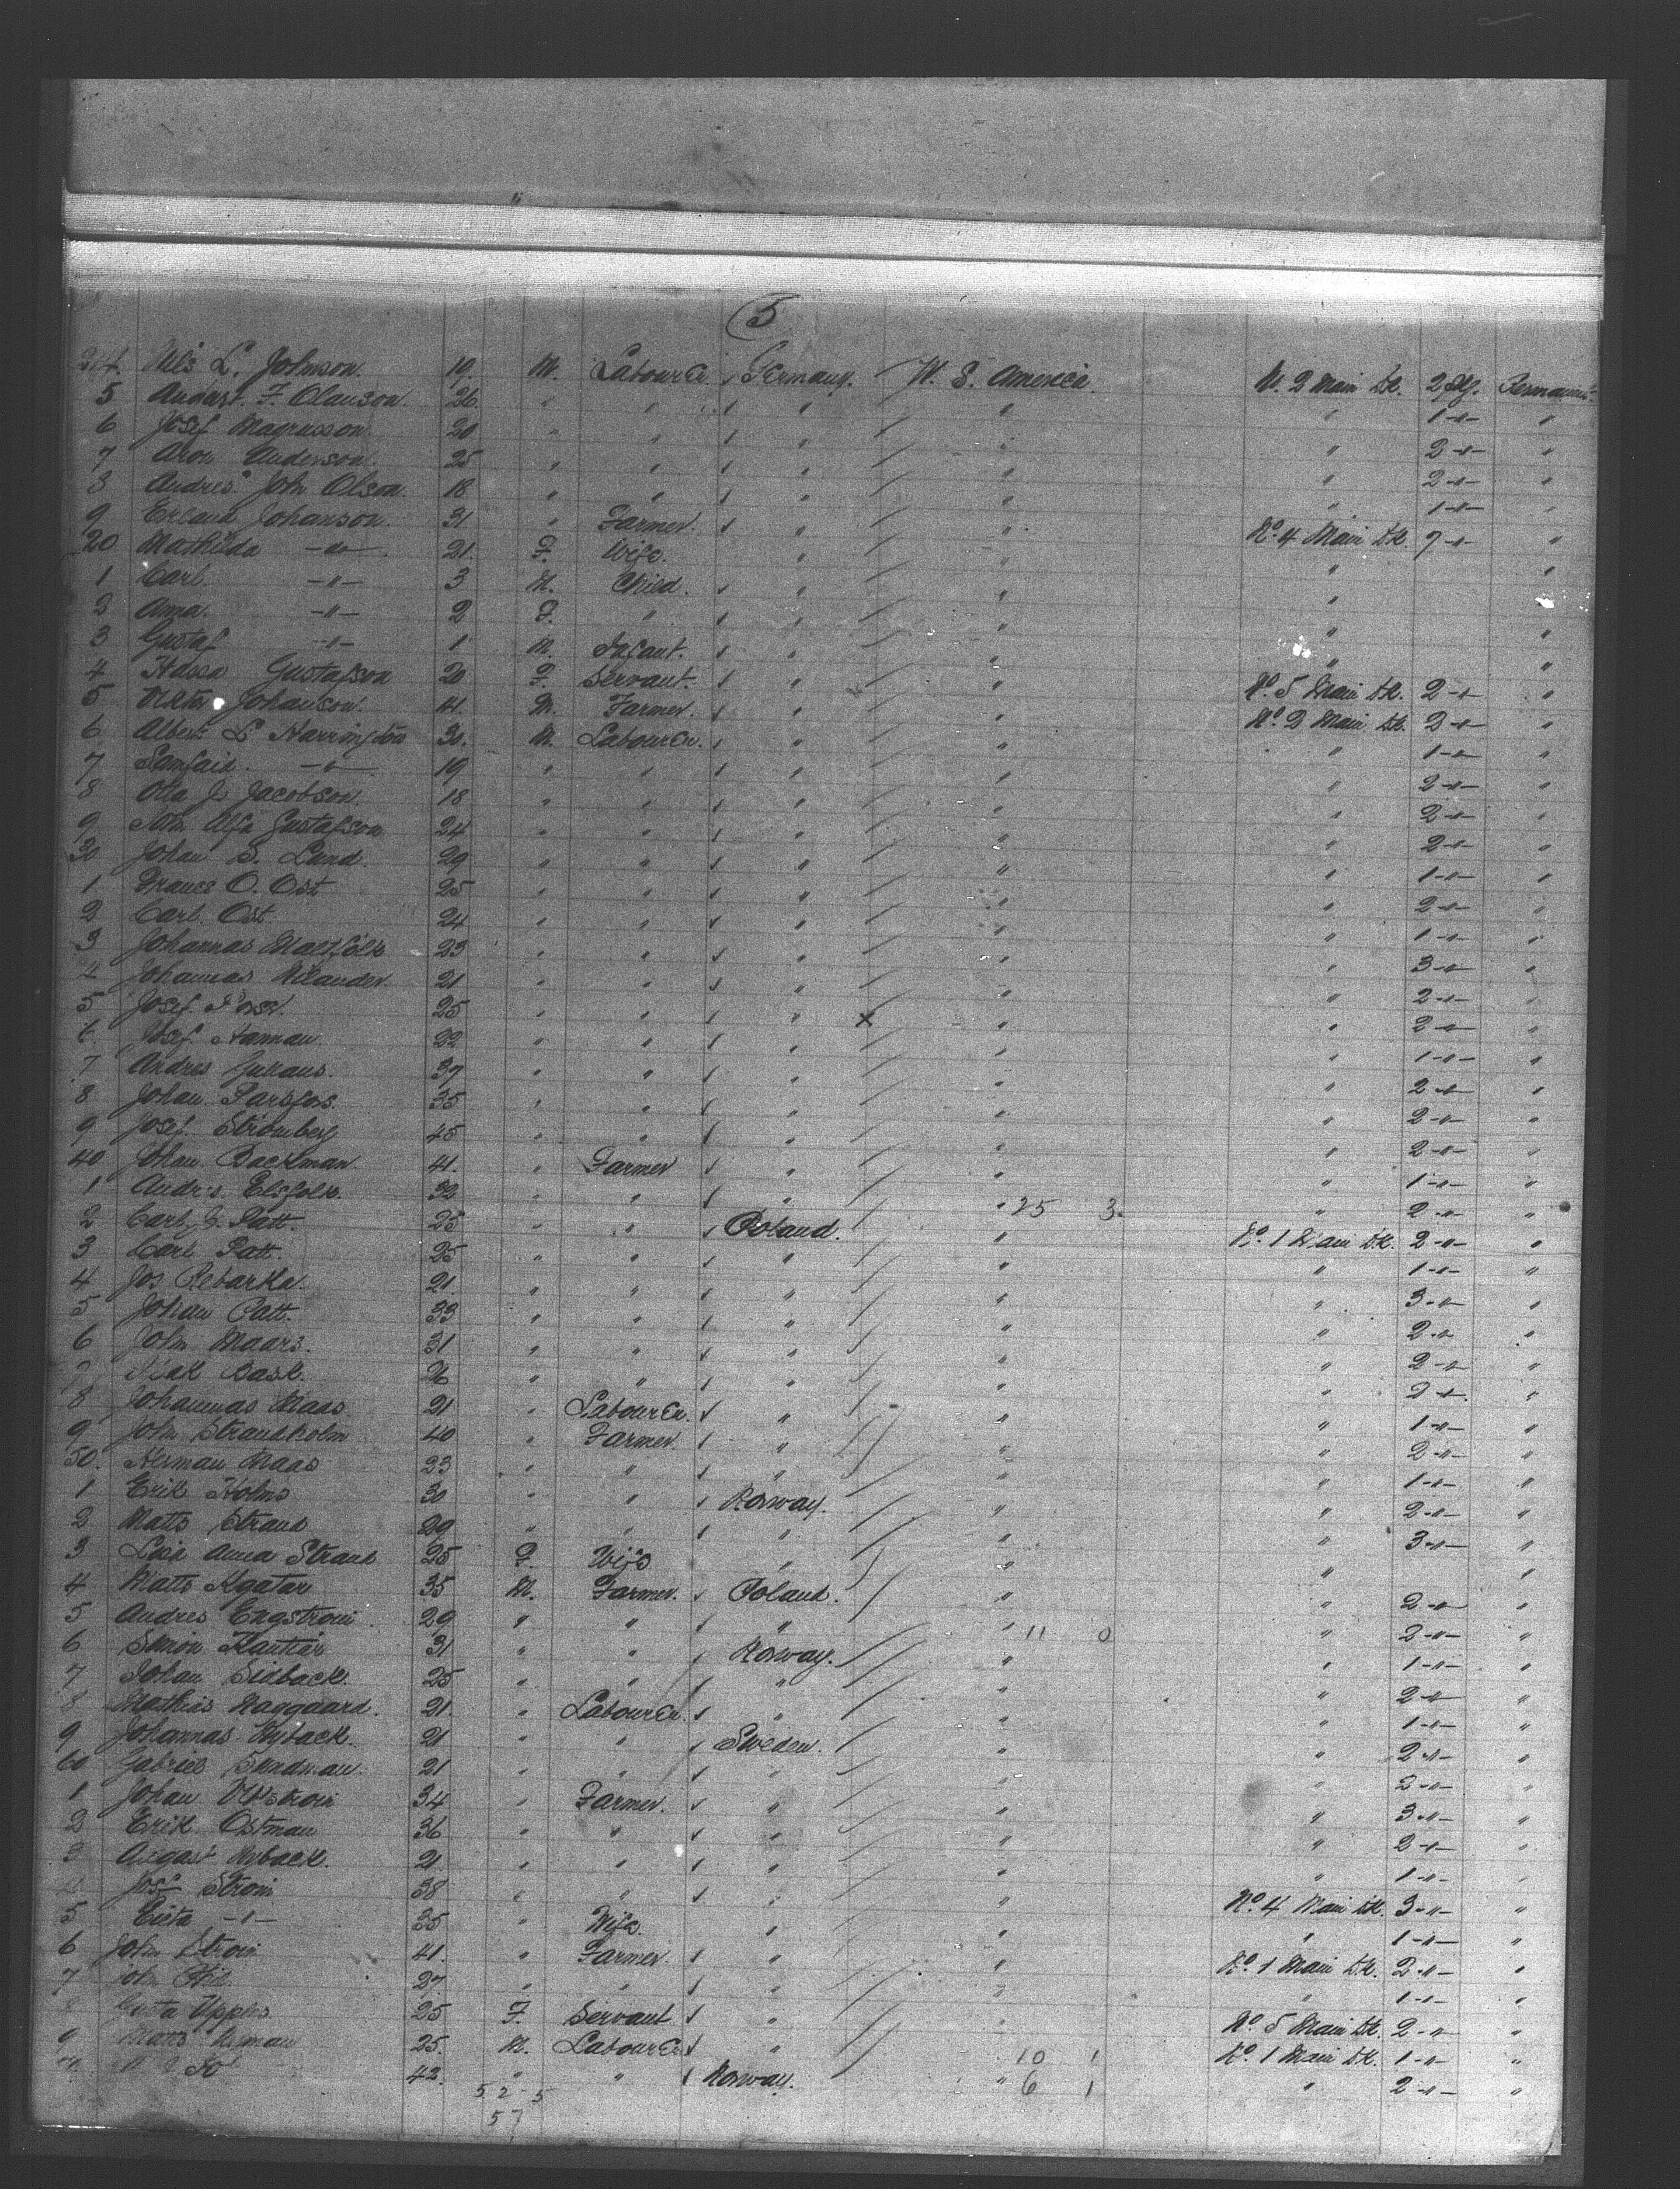 5
214. Nils L. Johnson. 19 M. Labourer. Germany. U. S. America. N. 2 Main Dk. 2 Pkg. Permanent.
5 August F. Olauson. 26 " " " " " 1 -"- "
6 Josef Magnusson. 20 " " " " " 2 -"- "
7 Aron Anderson 25 " " " " " 2 -"- "
8 Andres John Olson. 18 " " " " " 1 -"- "
9 Erland Johanson. 31 " Farmer. " " No. 4 Main Dk. 7 -"- "
20 Mathilda -"- 21. F. Wife. " " " "
1 Carl. -"- 3 M. Child. " " "
2 Anna. -"- 2 F. " " " " "
3 Gustaf -"- 1 M. Infant. " " " "
4 Gustafson 20 F. Servant. " " No. 5 Main Dk. 2 -"- "
5 Viktor Johanson. 41. M. Farmer. " " No. 2 Main Dk. 2 -"- "
6 Albert L Harrington 30. M. Labourer. " " " 1 -"- "
7 -"- 19 " " " " " 2 -"- "
8 Otto J. Jacobson. 18 " " " " " 2 -"- "
9 John Alfa Gustafson 24 " " " " " 2 -"- "
30 Johan S. Lund. 29 " " " " " 1 -"- "
1 Frans O. Ost 25 " " " " " 2 -"- "
2 Carl Ost 24 " " " " " 1 -"- "
3 Johannas 23 " " " " " 3 -"- "
4 Johannas Nilander. 21 " " " " " 2 -"- "
5 Josef 25 " " " x " " 2 -"- "
6 Josef Hannau 22 " " " " " 1 -"- "
7 Andres 37 " " " " " 2 -"- "
8 Johan. Parsfors. 35 " " " " " 2 -"- "
9 Josef. Stromberg 45 " " " " " 2 -"- "
40 Johan Backman. 41. " Farmer " " " 1 -"- "
1 Andrs. Elsfolk. 32 " " " " 25 3. " 2 -"- "
2 Carl G. Patt. 25 " " Poland. " No. 1 Main Dk. 2 -"- "
3 Carl Patt. 25 " " " " " 1 -"- "
4 Jos Rebarka. 21. " " " " " 3 -"- "
5 Johan Patt. 33 " " " " " 2 -"- "
6 John Maars. 31 " " " " " 2 -"- "
7 Isak Bask. 26 " " " " " 2 -"- "
8 Johannas Maas 21 " Labourer. " " " 1 -"- "
9 John Strandholm 40 " Farmer. " " " 2 -"- "
50. Herman Maas 23 " " " " " 1 -"- "
1 Erik Holms 30 " " Norway. " " 2 -"- "
2 Matts Strand 29 " " " " " 3 -"- "
3 Anna Strand 25 F. Wife " " " "
4 Matts 35 M. Farmer. Poland. " " 2 -"- "
5 Andres Engstrom 29 " " " " 11 0 " 2 -"- "
6 Simon 31 " " Norway. " " 1 -"- "
7 Johan Sidback. 25 " " " " " 2 -"- "
8 Mathias Naggaard. 21. " Labourer. " " " 1 -"- "
9 Johannas Nyback. 21 " " Sweden. " " 2 -"- "
60 Gabriel Sundman. 21 " " " " " 2 -"- "
1 Johan 34 " Farmer. " " " 3 -"- "
2 Erik Ostman 36 " " " " " 2 -"- "
3 August Nyback. 21. " " " " " 1 -"- "
4 Josf Strom 38 " " " " No. 4 Main Dk. 3 -"- "
5 -"- 35 " Wife. " " " 1 -"- "
6 John Strom 41. " Farmer. " " No. 1 Main Dk. 2 -"- "
7 John 27. " " " " " 1 -"- "
8 25 F. Servant " " No. 5 Main Dk. 2 -"- "
9 Matts Nyman 25. M. Labourer " 10 1 No. 1 Main Dk. 1 -"- "
42. " " Norway. " 6 1 " 2 -"- "
52-5
57